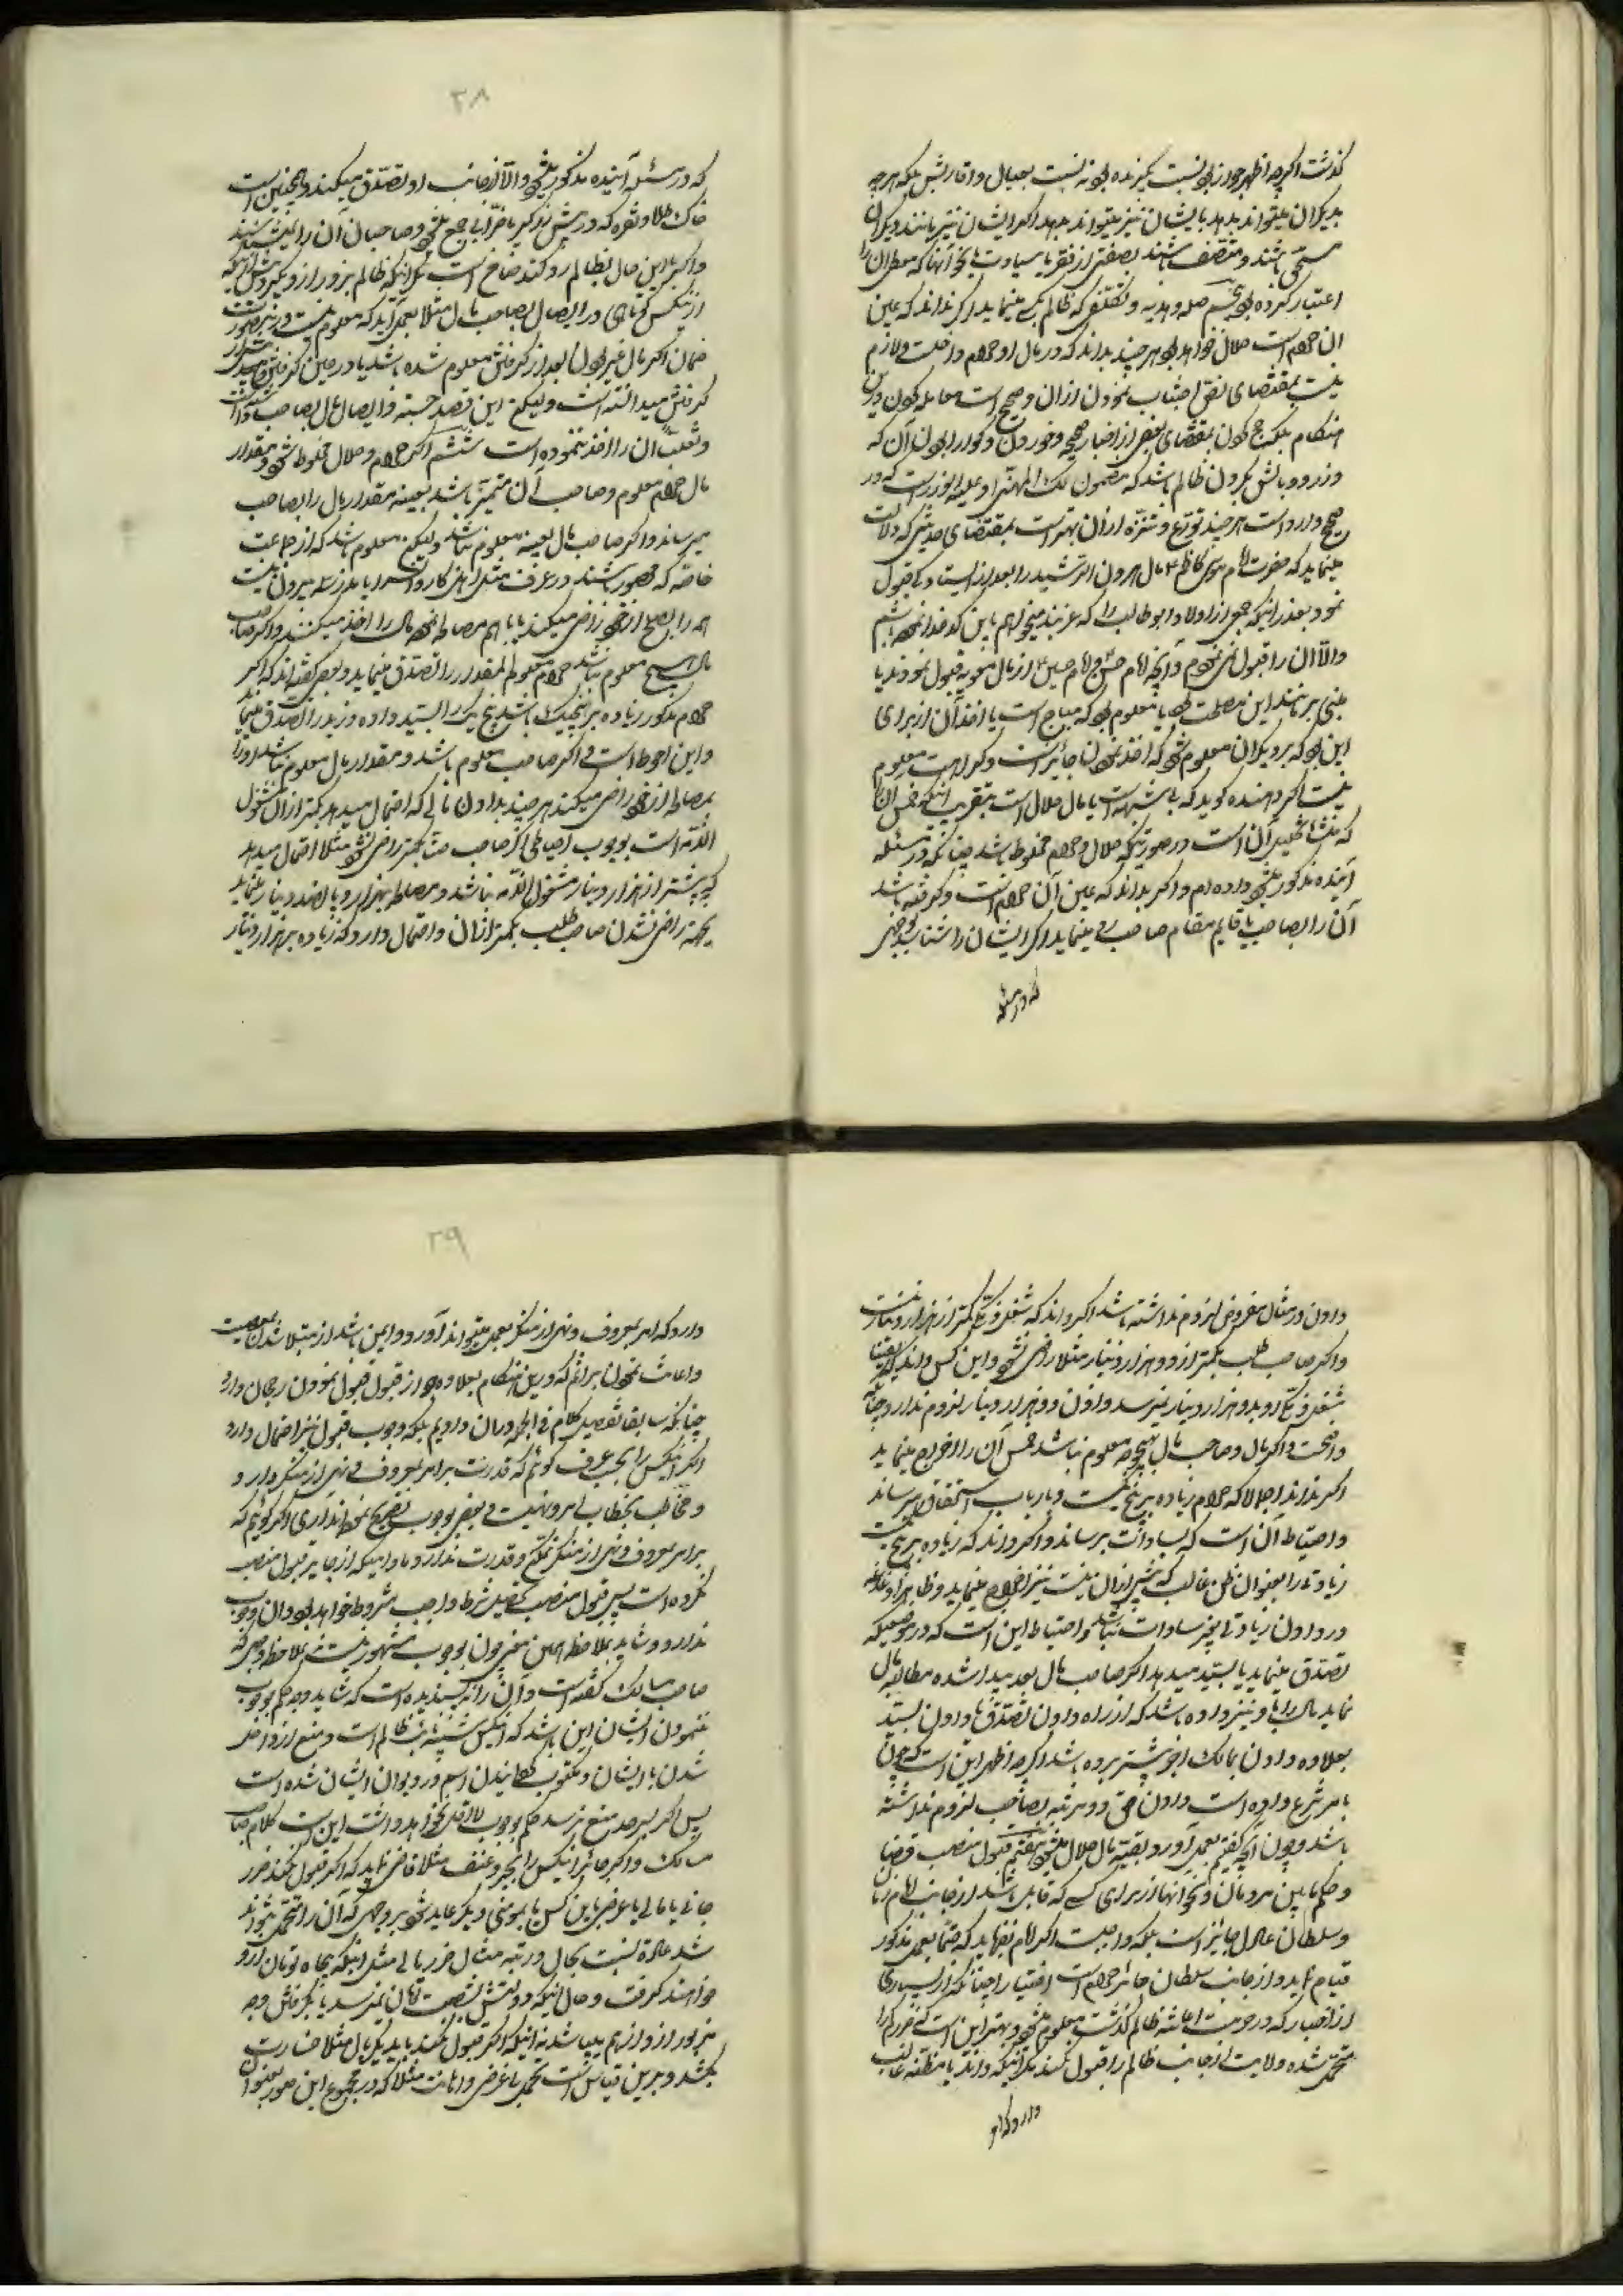 گذشت اگرچه اظهر جواز بود نسبت بگیرنده بود نه نسبت بعیال و اقاربش بلکه هر چه
بدیگران میتواند بدهد بایشان نیز میتواند بدهد اگر ایشان نیز مانند دیگران
مستحق باشند و متصف باشند بصفتی از فقر یا سیادت یا نحو آنها که معطی آن را
اعتبار کرده بود صله و هدیه و تکلفی که ظالم بکسی مینماید اگر نداند که عین
آن حرام است حلال خواهد بود هر چند بداند که در مال او حرام داخلست و لازم
نیست بمقتضای نص اجتناب نمودن از آن و صحیح است معامله کردن درین
هنگام بلکه حج کردن بمقتضای بعضی از اخبار صحیحه و خوردن و گوارا بودن آن که
وزر و وبالش بگردن ظالم باشد که مضمون لک المهنأ و علیه الوزر است که در
صحیح وارد است هر چند تورع و تنزه از آن بهتر است بمقتضای حدیثی که دلالت
مینماید که حضرت امام موسی کاظم ع مال هرون الرشید را بعد از استادگی قبول
نمود بعذر اینکه جمعی از اولاد ابوطالب را که عزبند میخواهم باین کدخدا نموده باشم
والا آن را قبول نمی نمودم و آنچه امام حسن و امام حسین ع از مال معویه قبول نمودند یا
مبنی بر مانند این مصلحت بود یا معلوم بود که مباح است یا اخذ آن از برای
این بود که بر دیگران معلوم شود که اخذ نمودن جائز است و کراهت معلوم
نیست اگر دهنده گوید که بی شبهه است یا مال حلال است بتقریب اینکه خمس آن
که منشأ تحلیل آن است در صورتیکه حلال و حرام مخلوط باشد چنانکه در مسئله
آینده مذکور میشود داده ام و اگر بداند که عین آن حرام است و گرفته باشد
آن را بصاحب یا قایم مقام صاحب رد مینماید اگر ایشان را شناسد بوجهی
که در مسئله
۲۸
که در مسئله آینده مذکور میشود والا از جانب او تصدق میکند و همچنین است
خاک طلا و نقره که در پیش زرگر یا ضرابی جمع میشود و صاحبان آن را نمیشناسند
واگر با این حال بظالم رد کند ضامن است مگر اینکه ظالم بزور ازو بگیرد پیش از اینکه
ازینکس کوتاهی در ایصال بصاحب مال مثلا بعمل آید که معلوم نیست درینصورت
ضمان اگر مال غیر بودن بعد از گرفتن معلوم شده باشد یا در حین گرفتن
گرفتن میدانسته است ولیکن این قصد حسبه و ایصال مال بصاحب داشت
و تغلبا آن را اخذ ننموده است ششم اگر حرام و حلال مخلوط شود و مقدار
مال حرام معلوم و صاحب آن متمیز باشد بعینه مقدار مال را بصاحب
میرساند واگر صاحب مال بعینه معلوم نباشد ولیکن معلوم باشد که از جماعت
خاصه که محصور باشند در عرف مثل اهل کاروانسرا یا مدرسه بیرون نیست
همه را بصلح از خود راضی میکند یا باهم مصالحه نموده مال را اخذ میکنند واگر صاحب
مال هیچ معلوم نباشد حرام مخلوط المقدار را تصدق مینماید و بعضی گفته اند که اگر
حرام مذکور زیاده بر پنجیک باشد پنج یک را بسید داده و زیاد را تصدق مینماید
و این احوط است و اگر صاحب معلوم باشد و مقدار مال معلوم نباشد او را
بمصالحه از خود راضی میکند هر چند بدادن مالی که احتمال میدهد بکمتر از آن مشغول
الذمه است بوجوب احتیاطی اگر صاحب حق بکمتر راضی نشود مثلا احتمال میدهد
که بیشتر از هزار دینار مشغول الذمه نباشد و مصالحه بهزار و پانصد دینار مینماید
بجهة راضی نشدن صاحب طلب بکمتر از آن و احتمال دارد که زیاده بر هزار دینار
دادن در مثال مفروض لزوم نداشته باشد اگر داند که شغل ذمه بکمتر از هزار دینار نیست
واگر صاحب طلب بکمتر از دو هزار دینار مثلا راضی نشود و این کس داند که یقینا
شغل ذمه او بدو هزار دینار نمیرسد دادن دو هزار دینار لزوم ندارد چنانکه
واضحست و اگر مال و صاحب مال بهیچوجه معلوم نباشد خمس آن را اخراج مینماید
اگر نداند اجمالا که حرام زیاده بر پنج یکست و بارباب استحقاق میرساند
و احتیاط آن است که بسادات برساند واگر داند که زیاده بر پنج یکست
زیادتی را بعنوان ظن غالب که بیشتر از آن نیست نیز اخراج مینماید و ظاهرا
در دادن زیادتی بغیر سادات نباشد و احتیاط این است که در موضعیکه
تصدق مینماید یا بسید میدهد اگر صاحب مال بعد پیدا شده مطالبه مال
نماید مال را باو نیز داده باشد که از راه دادن تصدق یا دادن بسید
بعلاوه دادن بمالک اجر بیشتر برده باشد اگرچه اظهر این است که چون
بامر شرع داده است دادن حق دو مرتبه بصاحب لزوم نداشته
باشد و چون آنچه گفتیم بعمل آورد بقیه مال حلال میشود هفتم قبول منصب قضا
و حکم مابین مردمان و نحو آنها از برای کسی که قابل باشد از جانب امام زمان
و سلطان عادل جائز است بلکه واجبست اگر امام بفرماید که حتما بعمل مذکور
قیام نماید و از جانب سلطان جائر حرام است اختیارا چنانکه از بسیاری
از اخبار که در حرمت اعانت ظالم گذشت معلوم میشود و بهتر این است که ضرر کم را
متحمل شده ولایت از جانب ظالم را قبول نکند مگر اینکه داند یا مظنه غالب
دارد که امر
۲۹
دارد که امر بمعروف و نهی از منکر بعمل میتواند آورد و ایمن باشد از مبتلا شدن بمعصیت
و اعانت نمودن بر اثم که درین هنگام بعلاوه جواز قبول قبول نمودن رجحان دارد
چنانکه سابقا تفصیل کلام فی الجمله در آن دادیم بلکه وجوب قبول نیز احتمال دارد
اگر اینکس را بحسب عرف گوئیم که قدرت بر امر بمعروف و نهی از منکر دارد و
و مخاطب بخطاب امر و نهیست و بعضی بوجوب تصریح نموده اند آری اگر گوئیم که
بر امر بمعروف و نهی از منکر تمکن و قدرت ندارد مادامیکه از جایر قبول منصب
نکرده است پس قبول منصب تحصیل شرط واجب مشروط خواهد بود و آن وجوب
ندارد و شاید بملاحظه همین معنی چون بوجوب مشهور نیست نه بملاحظه وجهی که
صاحب مسالک گفته است و آن را نپسندیده است که شاید وجه حکم بوجوب
ننمودن ایشان این باشد که اینکس شبیه بظالم است و منع از داخل
شدن با ایشان و مکتوب گردانیدن اسم در دیوان ایشان شده است
پس اگر بسرحد منع نرسد حکم بوجوب لااقل نخواهد داشت این است کلام صاحب
مسالک واگر جائر اینکس را بجبر و عنف مثلا قاضی نماید که اگر قبول نکند ضرر
جانی یا مالی یا عرضی باین کس یا بمومنی دیگر عاید شود بر وجهی که آن را متحمل نتواند
شد عادة نسبت بحال و رتبه مثال ضرر مالی مثل اینکه پنجاه تومان ازو
خواهند گرفت و حال اینکه دولتش بشصت تومان نمیرسد یا بگرفتن وجه
مزبور از او از هم میپاشد نه اینکه اگر قبول نکند باید یکریال مثلا خسارت
بکشد و برین قیاس است تحمل باعرض و اهانت مثلا که در مجموع این صور بعنوان